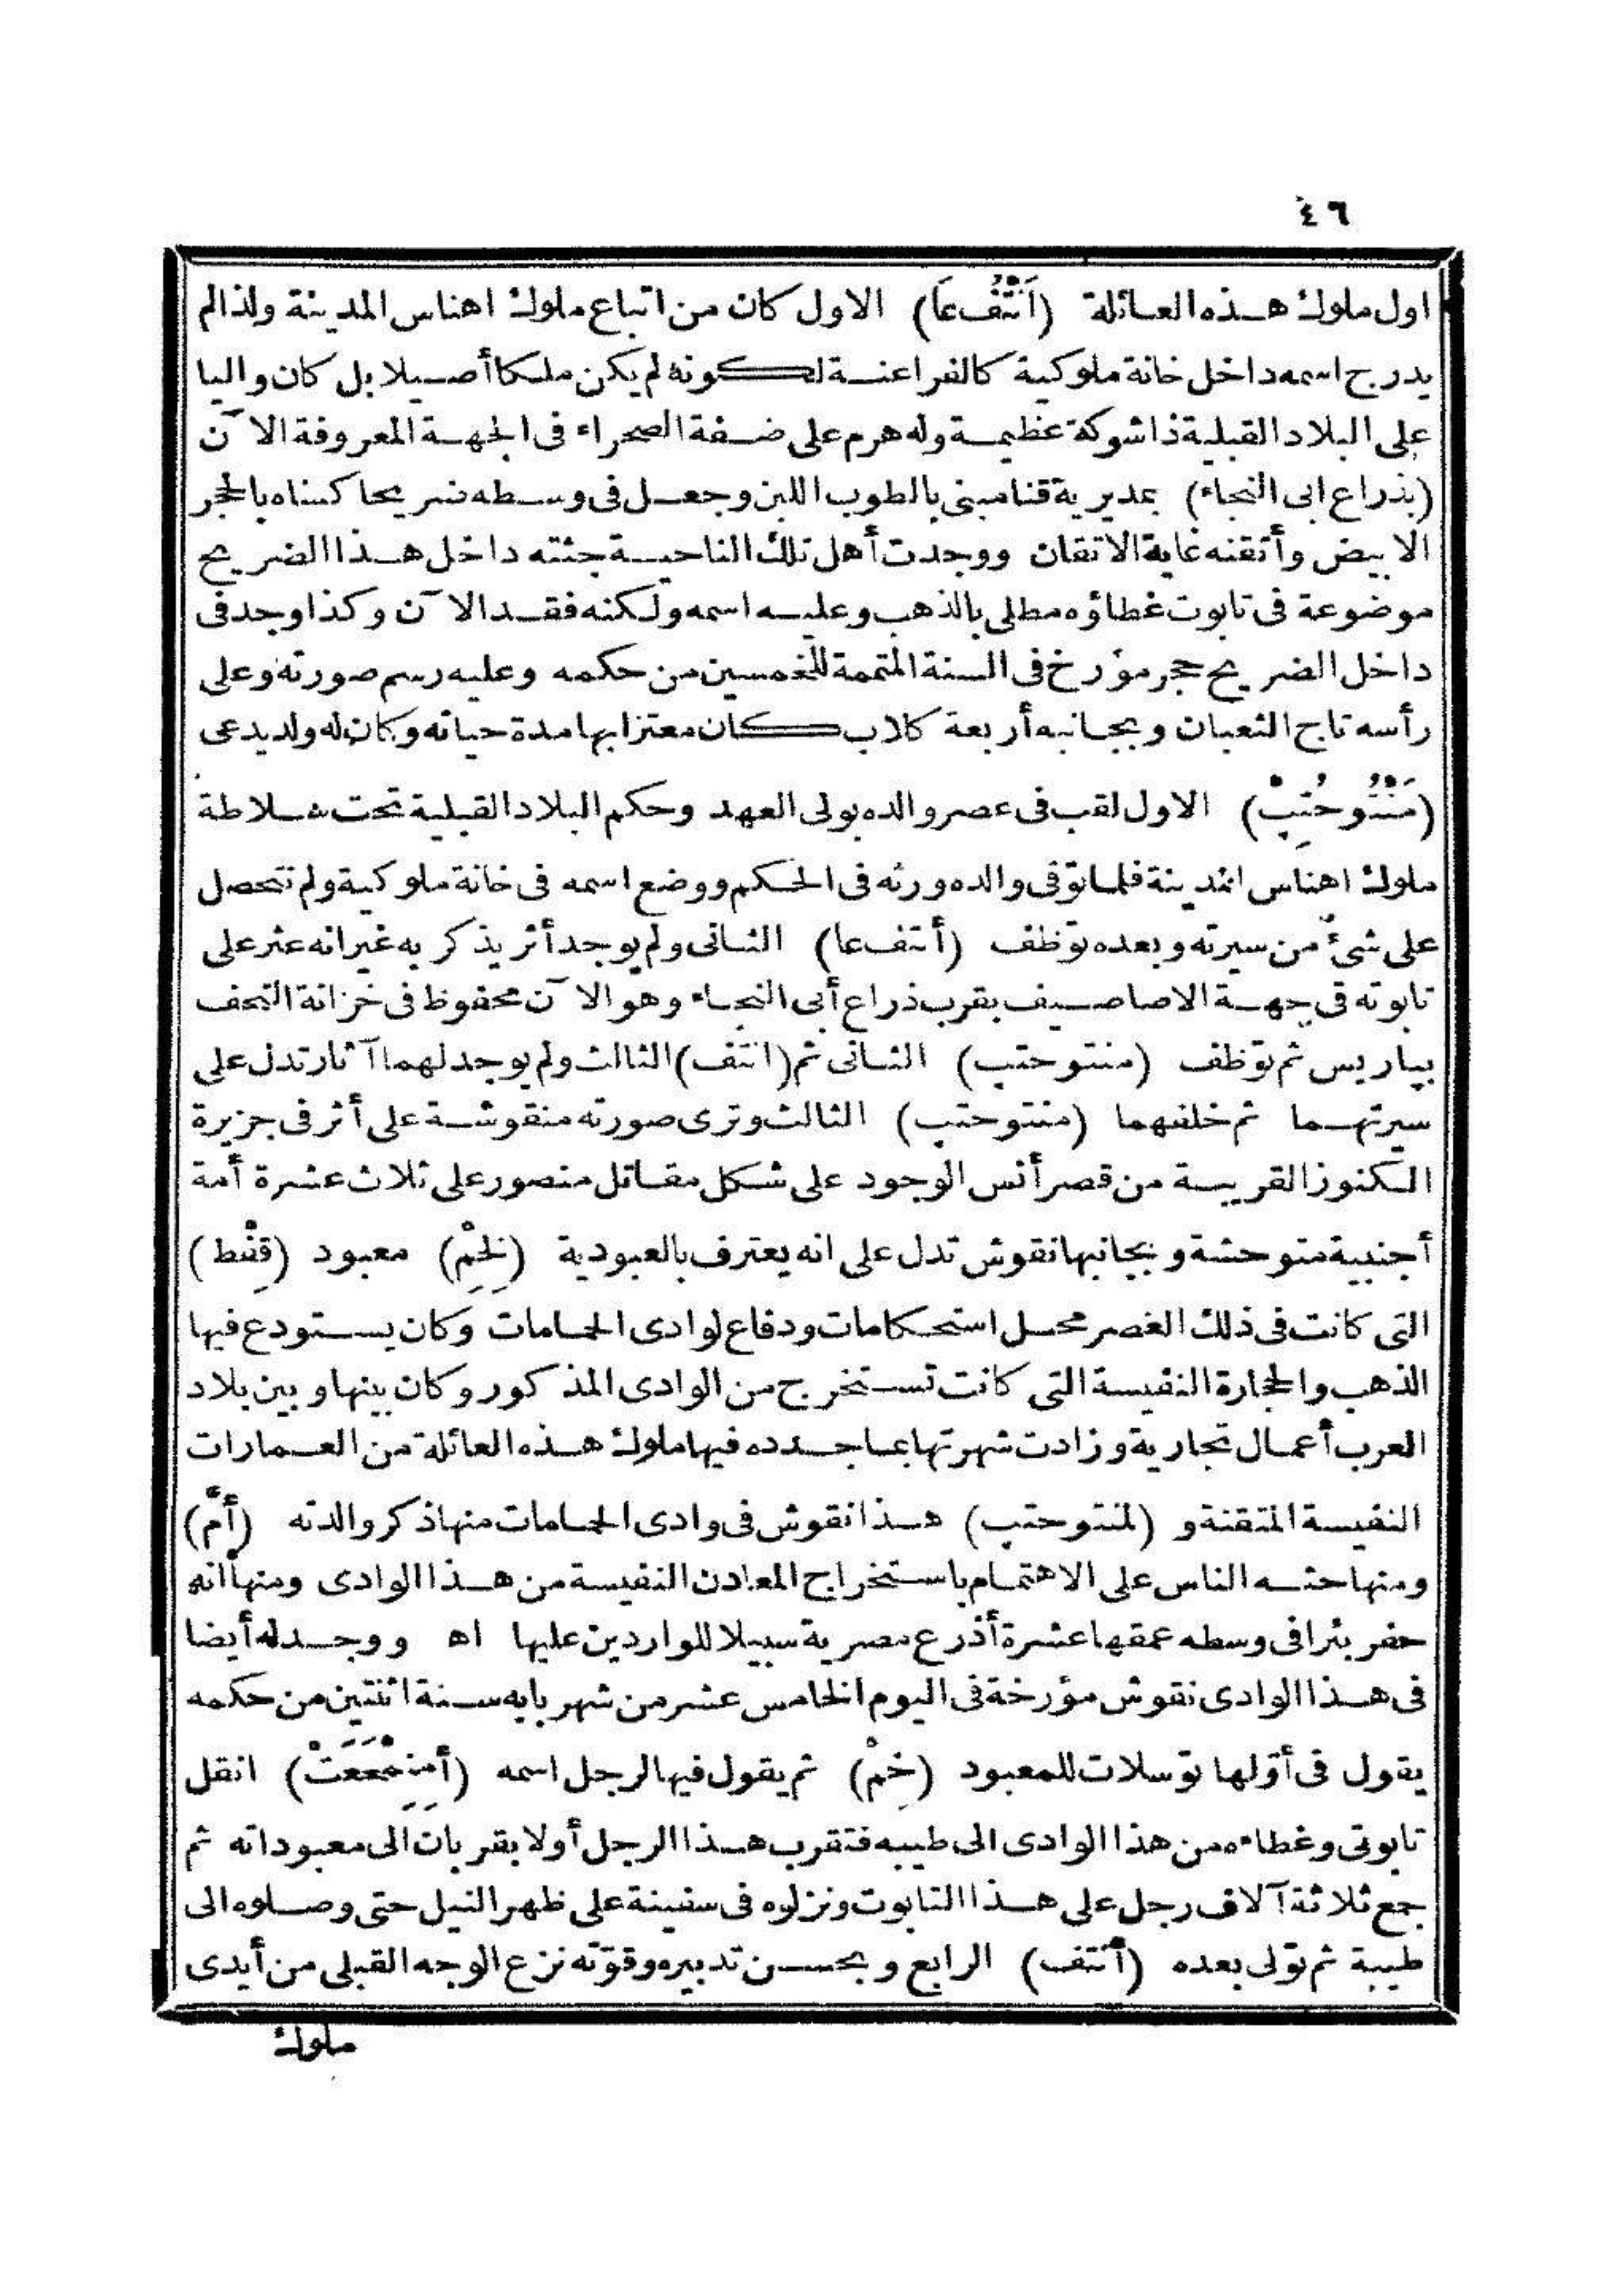 ٤٦
اول ملوك هذه العائلة (اَنْتُفْ عَا) الاول كان من اتباع ملوك اهناس المدينة ولذا لم
يدرج اسمه داخل خانة ملوكية كالفراعنة لكونه لم يكن ملكا أصيلا بل كان واليا
على البلاد القبلية ذا شوكة عظيمة وله هرم على ضفة الصحراء فى الجهة المعروفة الآن
(بذراع ابى النجاء) بمديرية قنا مبنى بالطوب اللبن وجعل فى وسطه ضريحا كساه بالحجر
الابيض وأتقنه غاية الاتقان ووجدت أهل تلك الناحية جثته داخل هذا الضريح
موضوعة فى تابوت غطاؤه مطلى بالذهب وعليه اسمه ولكنه فقد الآن وكذا وجد فى
داخل الضريح حجر مؤرخ فى السنة المتممة للخمسين من حكمه وعليه رسم صورته وعلى
رأسه تاج الثعبان وبجانبه أربعة كلاب كان معتزا بها مدة حياته وكان له ولد يدعى
(مَنْتُوحُتِبْ) الاول لقب فى عصر والده بولى العهد وحكم البلاد القبلية تحت سلاطة
ملوك اهناس المدينة فلما توفى والده ورثه فى الحكم ووضع اسمه فى خانة ملوكية ولم نتحصل
على شئ من سيرته وبعده توظف (أنتف عا) الثانى ولم يوجد أثر يذكر به غير انه عثر على
تابوته فى جهة الاصاصيف بقرب ذراع أبى النجاء وهو الآن محفوظ فى خزانة التحف
بباريس ثم توظف (منتوحتب) الثانى ثم (انتف) الثالث ولم يوجد لهما آثار تدل على
سيرتهما ثم خلفهما (منتوحتب) الثالث وترى صورته منقوشة على أثر فى جزيرة
الكنوز القريبة من قصر أنس الوجود على شكل مقاتل منصور على ثلاث عشرة أمة
أجنبية متوحشة وبجانبها نقوش تدل على انه يعترف بالعبودية (لِخِمْ) معبود (قِفْط)
التى كانت فى ذلك العصر محل استحكامات ودفاع لوادى الحمامات وكان يستودع فيها
الذهب والحجارة النفيسة التى كانت تستخرج من الوادى المذكور وكان بينها وبين بلاد
العرب أعمال تجارية وزادت شهرتها بما جدده فيها ملوك هذه العائلة من العمارات
النفيسة المتقنة و (لمنتوحتب) هذا نقوش فى وادى الحمامات منها ذكر والدته (أمَّ)
ومنها حثه الناس على الاهتمام باستخراج المعادن النفيسة من هذا الوادى ومنها انه
حفر بئرا فى وسطه عمقها عشرة أذرع مصرية سبيلا للواردين عليها اه ووجد له أيضا
فى هذا الوادى نقوش مؤرخة فى اليوم الخامس عشر من شهر بابه سنة اثنتين من حكمه
يقول فى أوّلها توسلات للمعبود (خِمْ) ثم يقول فيها لرجل اسمه انقل
تابوتى وغطاءه من هذا الوادى الى طيبه فتقرب هذا الرجل أولا بقربات الى معبوداته ثم
جمع ثلاثة آلاف رجل على هذا التابوت ونزلوه فى سفينة على ظهر النيل حتى وصلوه الى
طيبة ثم تولى بعده (أنتف) الرابع وبحسن تدبيره وقوّته نزع الوجه القبلى من أيدى
ملوك